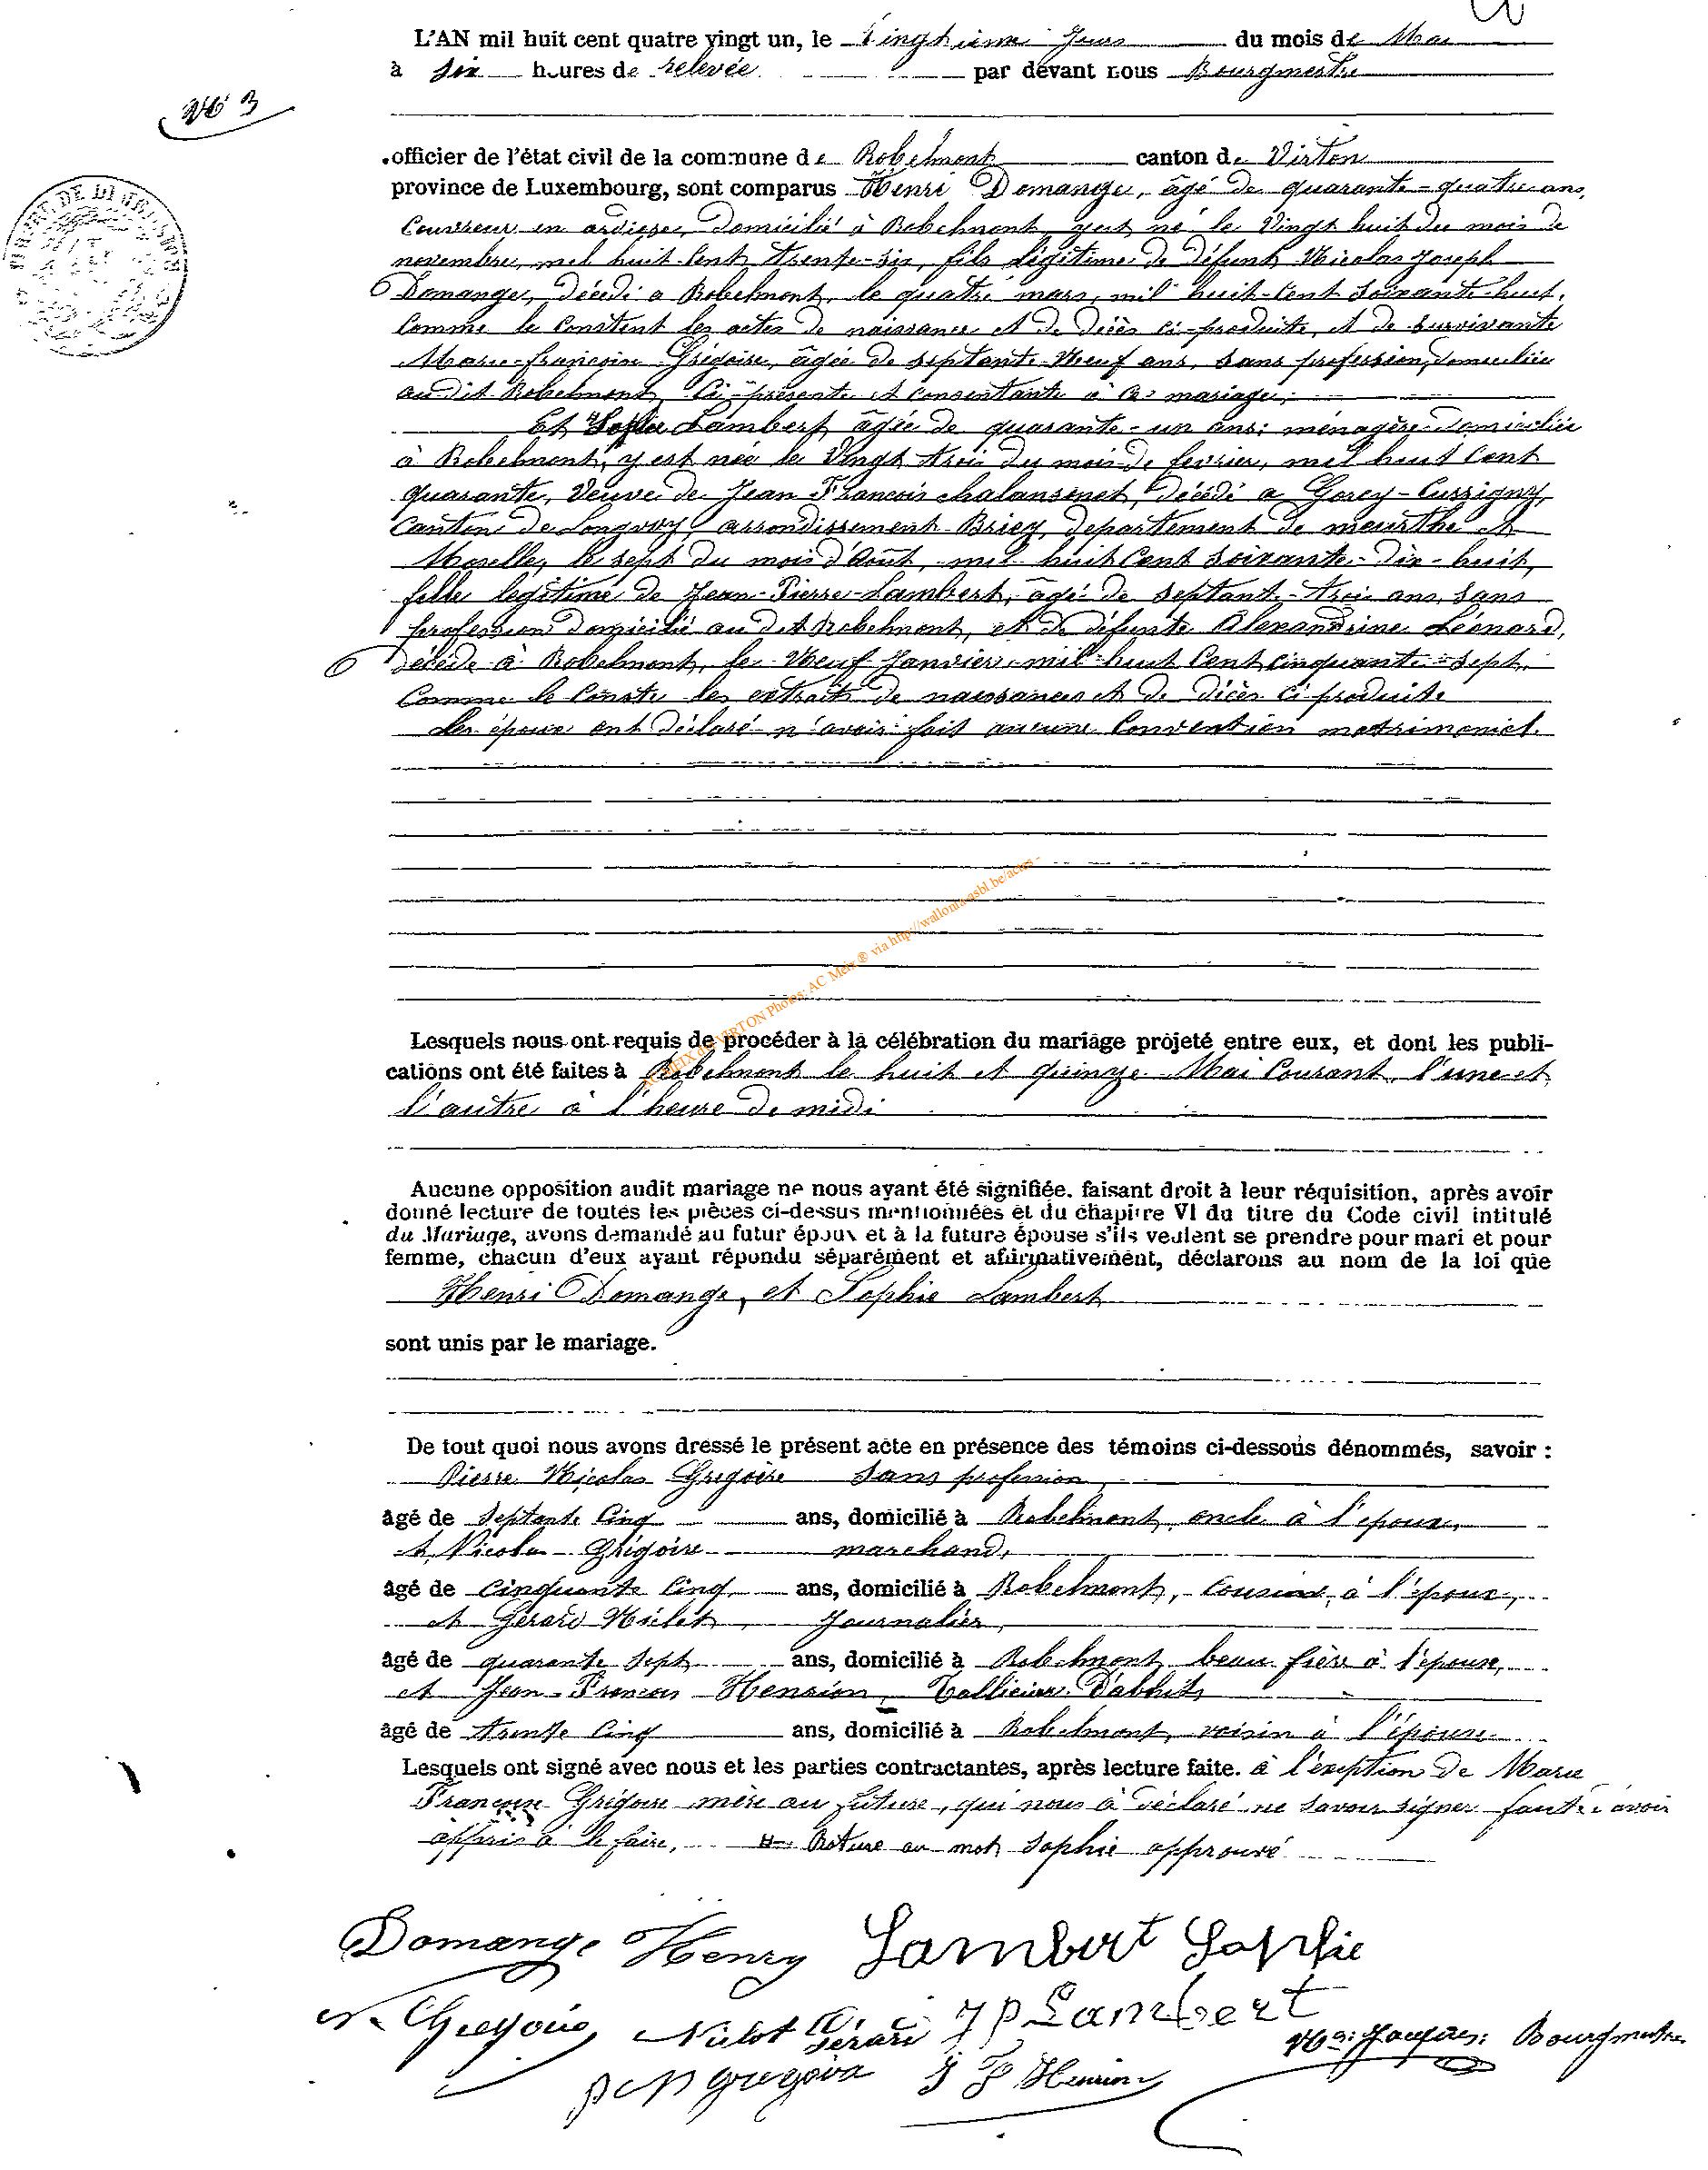 L'AN mil huit cent quatre vingt un, le Vingtième Jour du mois de Mai
à six heures de relevée par devant nous Bourgmestre
N° 3
officier de l'état civil de la commune de Robelmont canton de Virton
province de Luxembourg, sont comparus Henri Domange, âgé de quarante-quatre ans,
Couvreur en ardoises, domicilié à Robelmont, y est né le Vingt huit du mois de
novembre, mil huit Cent trente-six, fils légitime de défunt Nicolas Joseph
Domange, décédé a Robelmont, le quatre mars, mil huit-Cent soixante-huit,
Comme le Constent les actes de naissance et de décès ci-produits, et de survivante
Marie-françoise Grégoire, âgée de septante-Neuf ans, sans profession, domiciliée
au dit Robelmont, Ci-présente et consentante à ce mariage;
Et Sophie Lambert, âgée de quarante-un ans; ménagère domiciliée
à Robelmont, y est née le Vingt trois du mois de fevrier, mil huit Cent
quarante, Veuve de Jean François Chalansonet, décédé a Gorcy-Cussigny,
Canton de Longwy, arrondissement Briey, departement de meurthe et
Moselle, le sept du mois d'Août, mil huit Cent soixante-dix-huit,
fille legitime de Jean-Pierre Lambert, âgé de septante-trois ans, sans
profession domicilié au dit Robelmont, et de défunte Alexandrine Léonard,
décédé à Robelmont, le Neuf Janvier mil-huit Cent cinquante-sept.
Comme le Conste les extraits de naissances et de décès ci produits
Les époux ont déclaré n'avoir fait aucune Convention matrimoniel.
AC MEIX dvt VIRTON Photos: AC Meix ® via http://wallonia-asbl.be/actes -
Lesquels nous ont requis de procéder à la célébration du mariage projeté entre eux, et dont les publi-
cations ont été faites à Robelmont le huit et quinze Mai Courant, l'une et
l'autre à l'heure de midi
Aucune opposition audit mariage ne nous ayant été signifiée, faisant droit à leur réquisition, après avoir
donné lecture de toutes les pièces ci-dessus mentionnées et du chapitre VI du titre du Code civil intitulé
du Mariage, avons demandé au futur époux et à la future épouse s'ils veulent se prendre pour mari et pour
femme, chacun d'eux ayant répondu séparément et affirmativement, déclarons au nom de la loi que
Henri Domange, et Sophie Lambert
sont unis par le mariage.
De tout quoi nous avons dressé le présent acte en présence des témoins ci-dessous dénommés, savoir :
Pierre Nicolas Grégoire sans profession,
âgé de septante Cinq ans, domicilié à Robelmont, oncle à l'époux,
et Nicolas Grégoire marchand,
âgé de cinquante Cinq ans, domicilié à Robelmont, Cousin à l'époux,
et Gérard Nielot, Journalier,
âgé de quarante sept ans, domicilié à Robelmont, beau frère à l'épouse,
et Jean-François Henrion, D'abbits
âgé de trente Cinq ans, domicilié à Robelmont, voisin à l'épouse
Lesquels ont signé avec nous et les parties contractantes, après lecture faite. à l'exeption de Marie
Françoise Grégoire mère au future, qui nous à déclaré ne savoir signer faute d'avoir
appris à le faire, Rature au mot Sophie approuvé
Domange Henry Lambert Sophie
N. Gregoire Nielot Gérard J P Lambert
Bourgmestre
p N gregoire J F Henrion